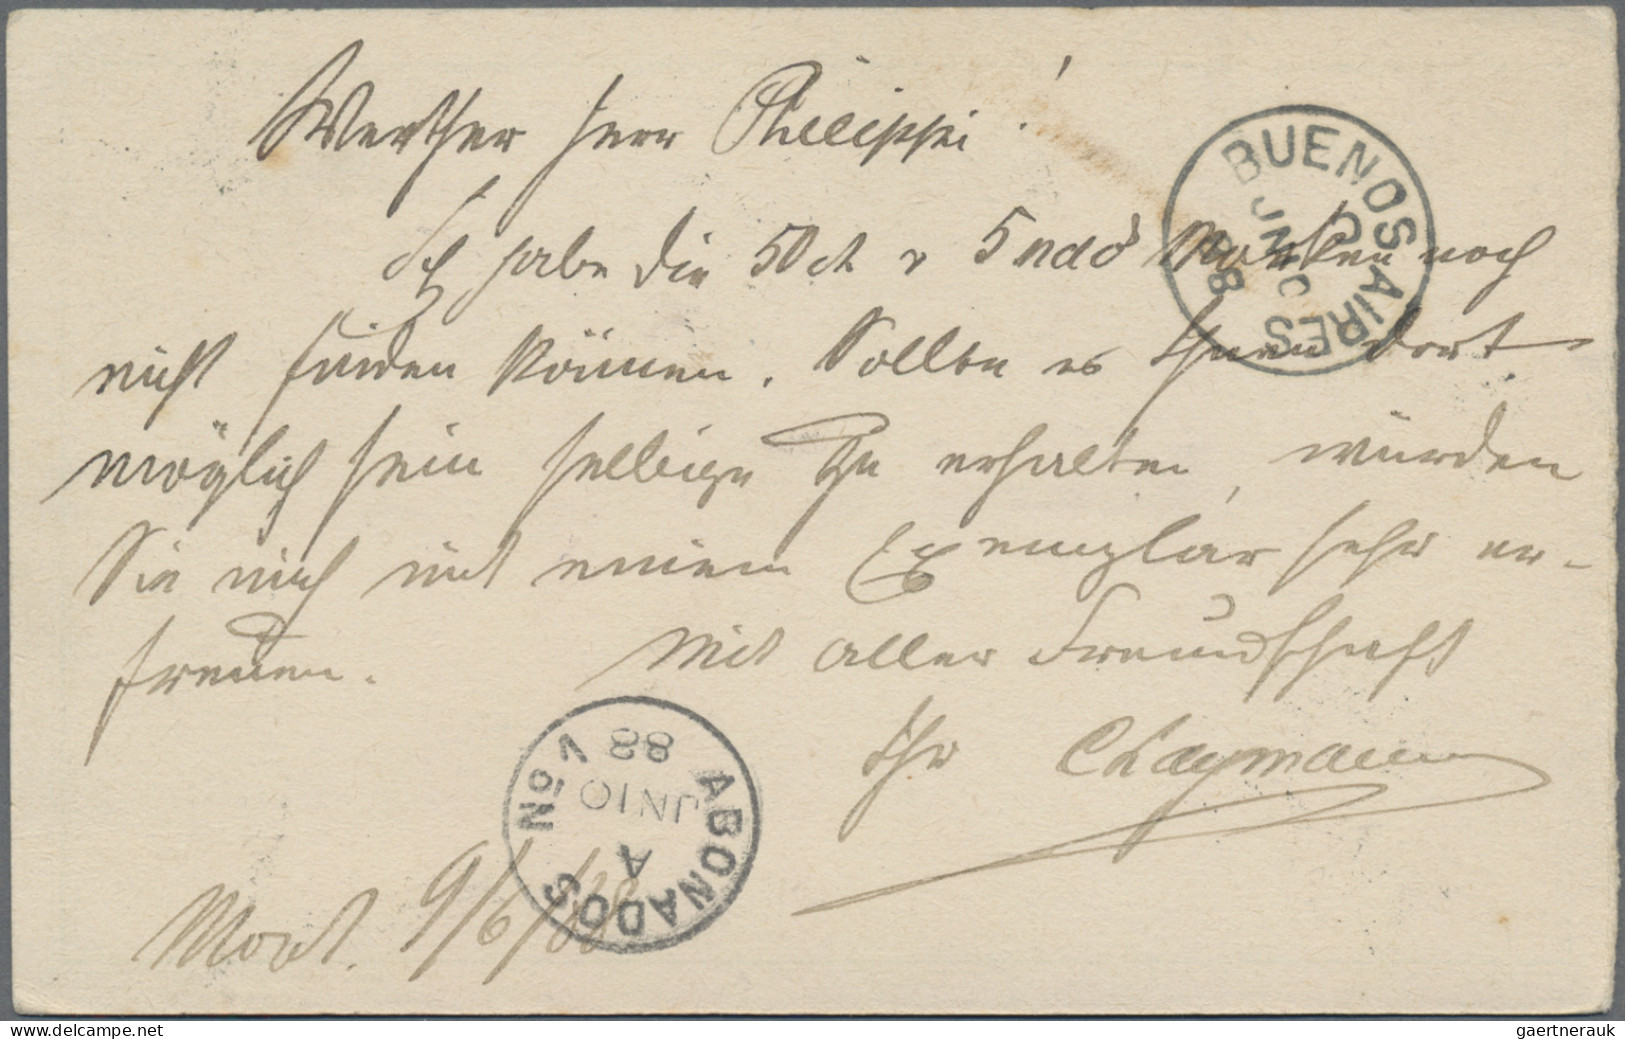 Werther Herr Philippi!
Ich habe die 50 ct & 5 Marken noch
nicht finden können. Sollte es Ihnen dort
möglich sein selbige zu erhalten, würden
Sie mich mit einem Exemplar sehr er-
freuen. Mit aller Freundschaft
Ihr
Mont. 9/6/88
BUENOS AIRES
JN 10
88
ABONADOS No V
A
JN 10
88
gaertnerauk